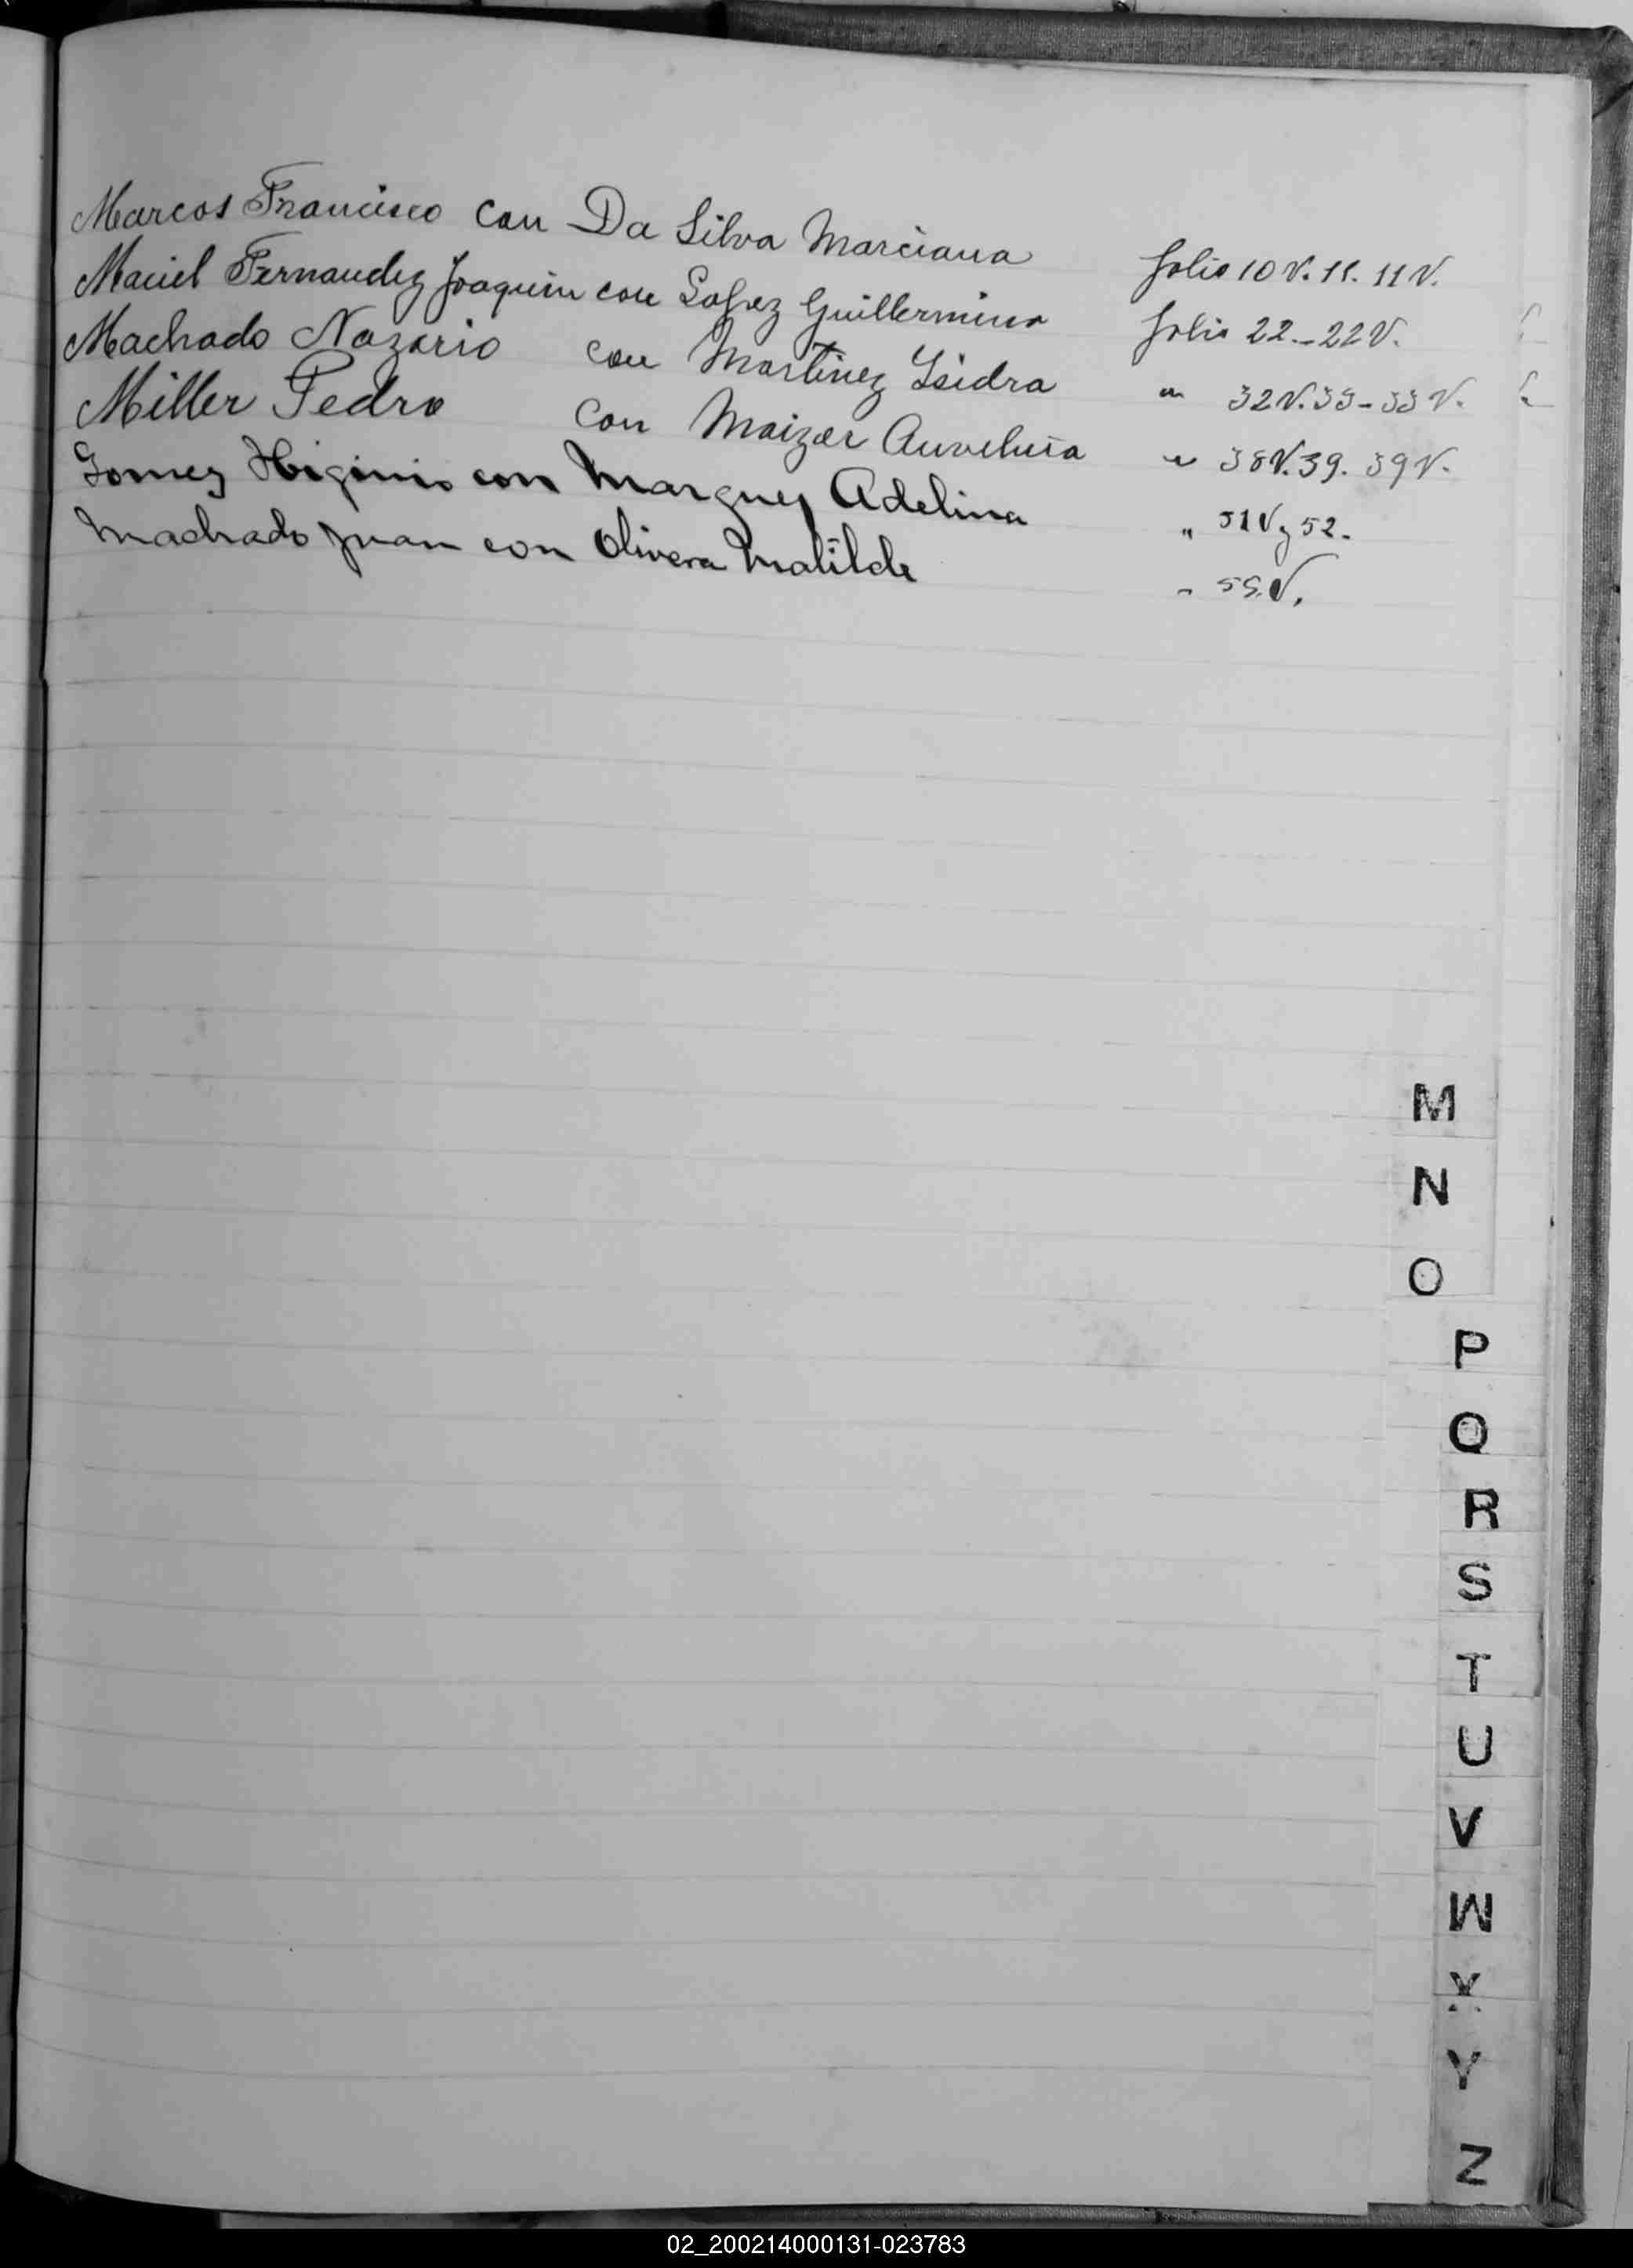 Marcos Francisco con Da Silva Marciana folio 10 V. 11. 11 V.
Maciel Fernandez Joaquin con Lopez Guillermina folio 22.-22 V.
Machado Nazario con Martinez Isidra " 32 V. 33-33 V.
Miller Pedro con Maizer " 38 V. 39. 39 V.
Gomez Higinio con Marquez Adelina " 51 V y 52.
Machado Juan con Olivera Matilde " 55. V.
M
N
O
P
Q
R
S
T
U
V
W
X
Y
Z
02_200214000131-023783